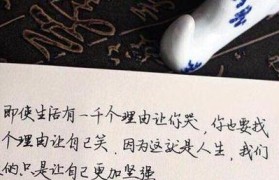 即使生活有一千个理由让你哭,你也要找
个理由让自己笑,因为这就是人生,我们
的,只是让自己更加坚强